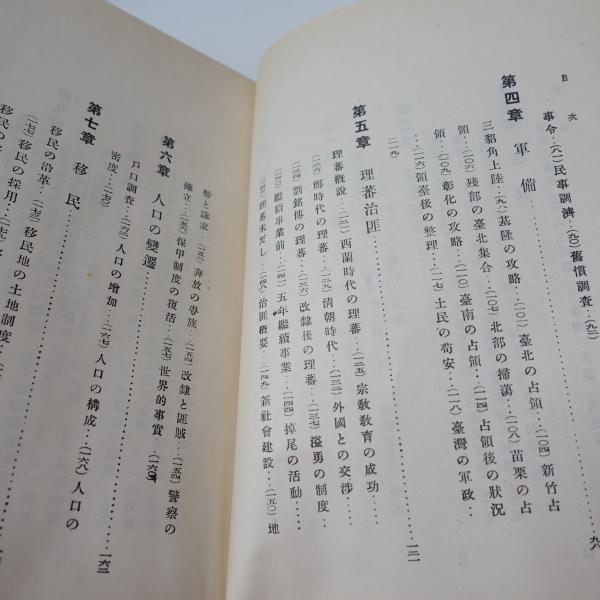 目次
事令‥(八一)民事調濟‥(九〇)舊慣調査‥(九二)
第四章　軍備‥‥‥‥‥‥‥‥九八
三貂角上陸‥(九八)基隆の攻略‥(一〇一)臺北の占領‥(一〇四)新竹占
領‥(一〇六)殘部の臺北集合‥(一〇七)北部の掃蕩‥(一〇八)苗栗の占
領‥(一〇九)彰化の攻略‥(一一〇)臺南の占領‥(一一四)占領後の狀況
‥(一一六)領臺後の整理‥(一一七)土民の苟安‥(一一八)臺灣の軍政‥
(一一九)
第五章　理蕃治匪‥‥‥‥‥‥‥‥一二一
理蕃槪說‥(一二一)西蘭時代の理蕃‥(一二五)宗敎敎育の成功‥‥
(一二六)鄭時代の理蕃‥(一二九)清朝時代‥(一三二)外國との交涉‥
(一三五)劉銘傳の理蕃‥(一三六)改隸後の理蕃‥(一三七)溢勇の制度‥
(一四〇)繼續事業前‥(一四一)五年繼續事業‥(一四四)掉尾の活動‥‥
(一四七)理蕃未だし‥(一四八)治匪槪要‥(一四九)新社會建設‥(一五〇)地
勢と誅求‥(一五一)奔放の蕃族‥(一五二)改隸と匪賊‥(一五四)警察の
確立‥(一五五)保甲制度の復活‥(一五七)世界的事實‥(一六〇)
第六章　人口の變遷‥‥‥‥‥‥‥‥一六二
戶口調査‥(一六二)人口の增加‥(一六七)人口の構成‥(一六八)人口の
密度‥(一七一)
第七章　移民‥‥‥‥‥‥‥‥
移民の沿革‥(一七三)移民地の土地制度‥
(一七七)移民の採用‥(一七九)